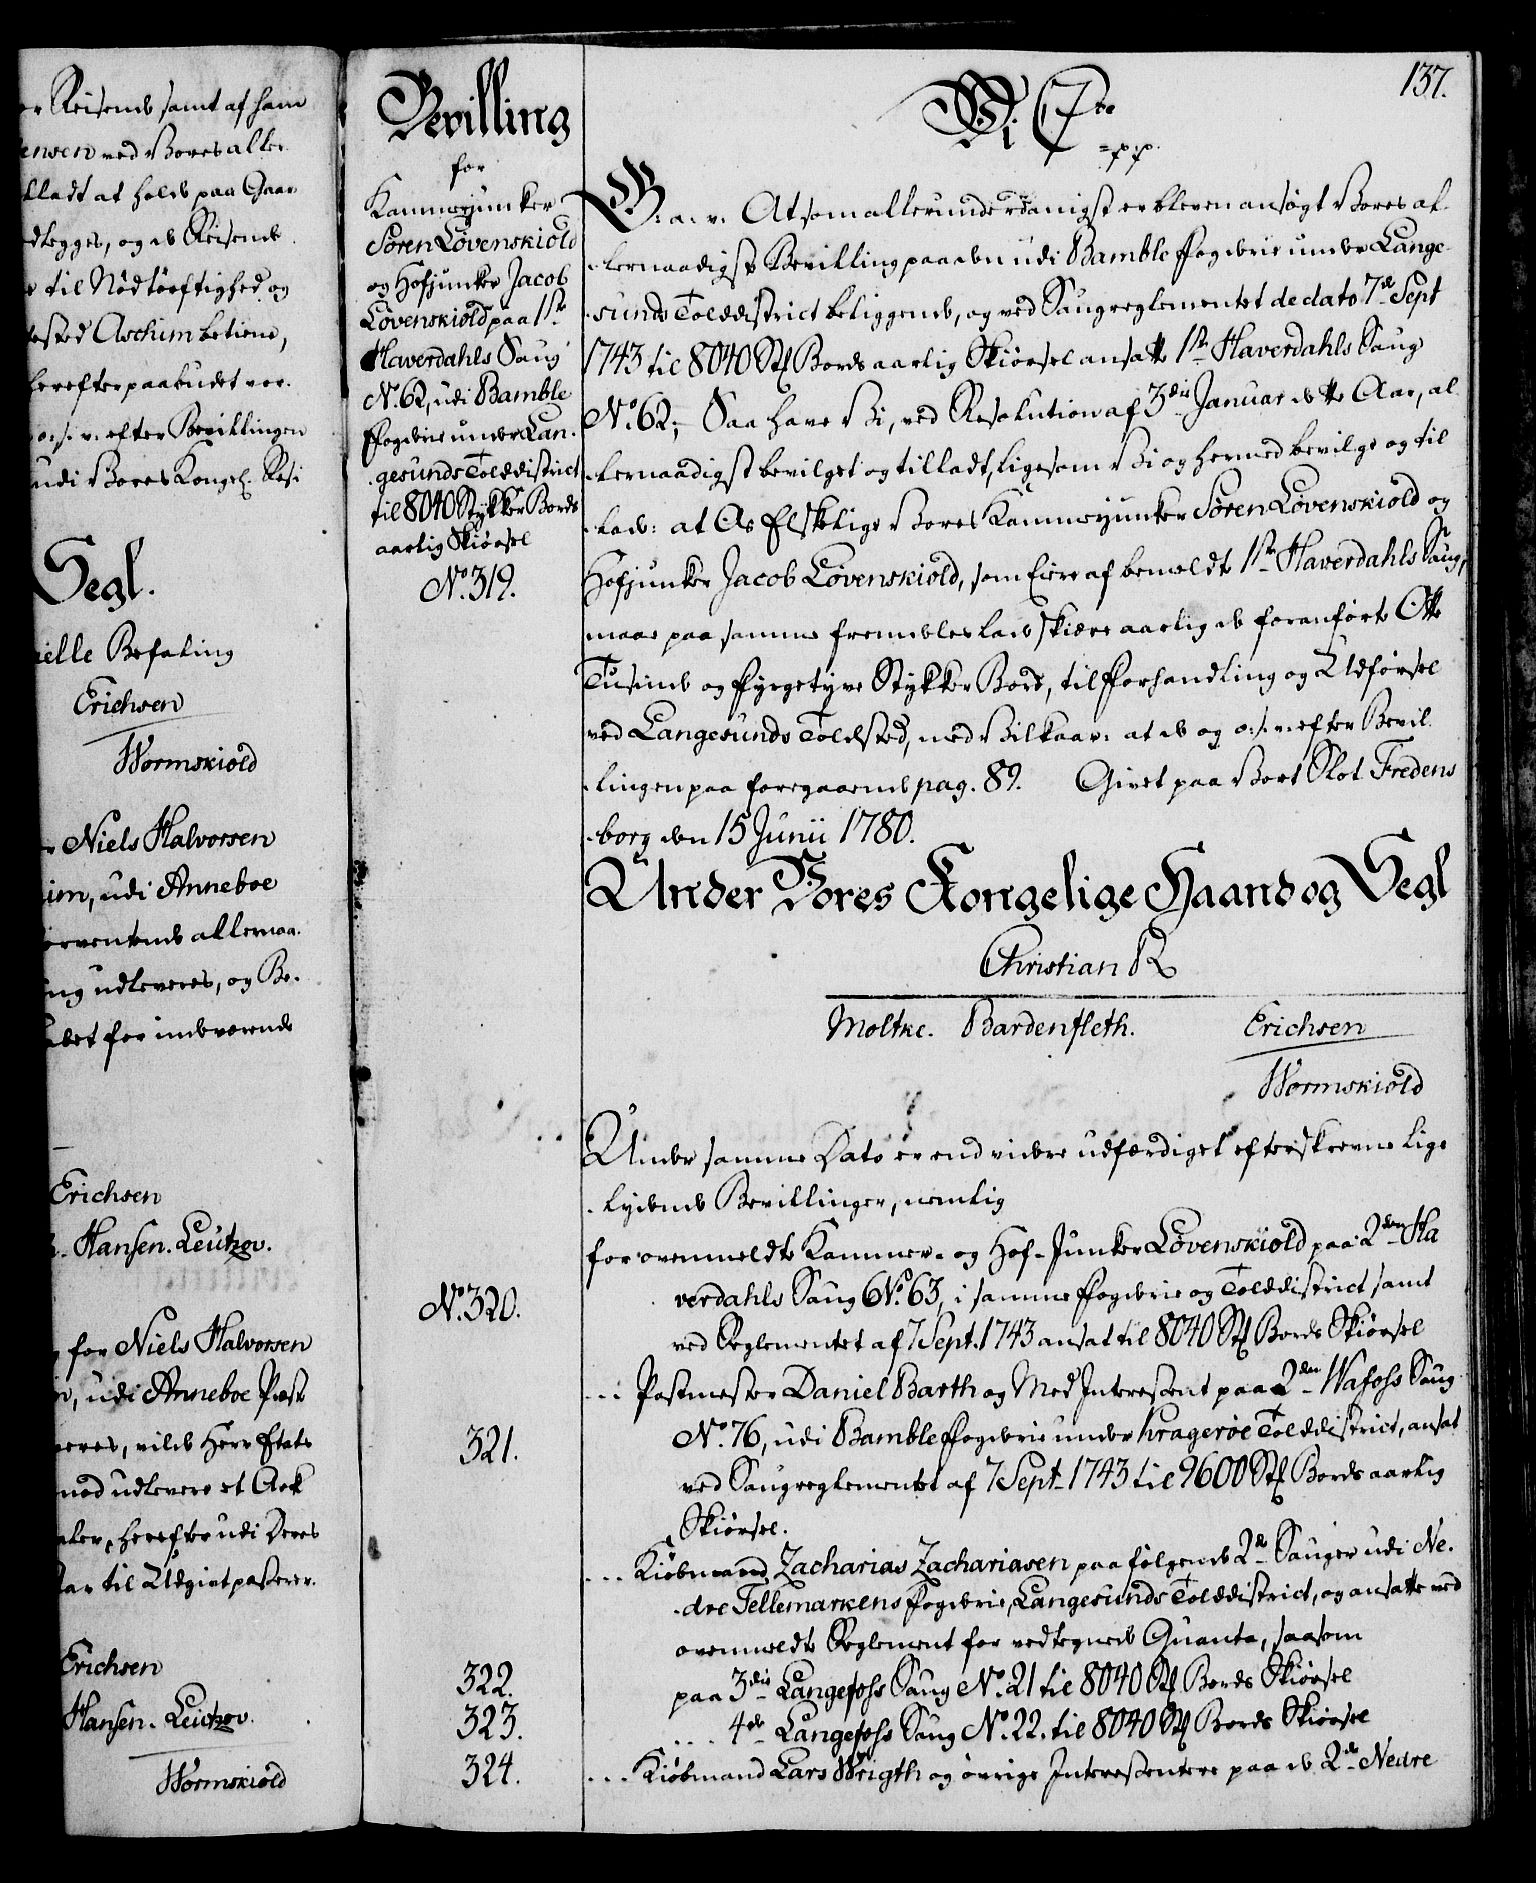 er Reisende samt af ham
ensen ved Vores aller
lladt at holde paa Gaar
dlegges, og de Reisende
til Nødtørftighed og
lested Aschim betiene,
herefter paabudet vor.
o: s: v: efter Bevillingen
udi Vores Kongel. Resi
Segl.
ielle Befaling
Erichsen
Wormskiold
Niels Halvorsen
im, udi Anneboe
erventende allernaa-
ng udleveres, og Be-
det for indværende
Erichsen
Hansen. Leützov.
for Niels Halvorsen
udi Anneboe Præste
veres, vilde Herr Etats
med udlevere et Ark
herefter udi Deres
til Udgivt paßerer.
Erichsen
Hansen. Leützov.
Wormskiold
Bevilling
for
Kammerjunker
Søren Løvenskiold
og Hofjunker Jacob
Løvenskiold paa 1ste
Haverdahls Saug
No. 62, udi Bamble
Fogderie under Lan-
gesunds Tolddistrict
til 8040 Stykker Bords
aarlig Skiørsel
No. 319.
No. 320.
321.
322.
323.
324.
137.
Vi C 7de
p.p.
G. a. v. At som allerunderdanigst er bleven ansøgt Vores al-
lernaadigste Bevilling paa den udi Bamble Fogderie under Lange-
sunds Tolddistrict beliggende, og ved Saugreglementet de dato 7de Sept
1743 til 8040 St Bords aarlig Skiørsel ansatte 1ste Haverdahls Saug
No. 62; Saa have Vi, ved Resolution af 3die Januar dette Aar, al-
lernaadigst bevilget og tilladt, ligesom Vi og hermed bevilge og til-
lade: at Os Elskelige Vores Kammerjunker Søren Løvenskiold og
Hofjunker Jacob Løvenskiold, som Eiere af bemeldte 1ste Haverdahls Saug,
maae paa samme fremdeles lade skiære aarlig de foranførte Otte
Tusinde og Fyrgetyve Stykker Bord, til Forhandling og Udførsel
ved Langesunds Toldsted, med Vilkaar: at de og o: s: v: efter Bevil-
lingen paa foregaaende pag. 89. Givet paa Vort Slot Fredens-
borg den 15 Junii 1780.
Under Vores Kongelige Haand og Segl
Christian R
Moltke. Bardenfleth. Erichsen
Wormskiold
Under samme Dato er end videre udfærdiget efterskrevne lige-
lydende Bevillinger, nemlig
for ovenmeldte Kammer- og Hof-Junker Løvenskiold paa 2den Ha
verdahls Saug No. 63, i samme Fogderie og Tolddistrict samt
ved Reglementet af 7 Sept. 1743 ansat til 8040 St Bords Skiørsel
... Postmester Daniel Barth og Med Interessent paa 2den Wafoss Saug
No. 76, udi Bamble Fogderie under Kragerøe Tolddistrict, ansat
ved Saugreglementet af 7 Sept. 1743 til 9600 St Bords aarlig
Skiørsel.
... Kiøbmand Zacharias Zachariasen paa følgende 2de Sauger udi Ne-
dre Tellemarkens Fogderie, Langesunds Tolddistrict, og ansatte ved
ovenmeldte Reglement for vedtegnede Quanta, saasom
paa 3die Langefoss Saug No. 21 til 8040 St Bords Skiørsel
.... 4de Langefoss Saug No. 22. til 8040 St Bords Skiørsel
... Kiøbmand Lars Wrigth og øvrige Interessentere paa de 2de Nedre